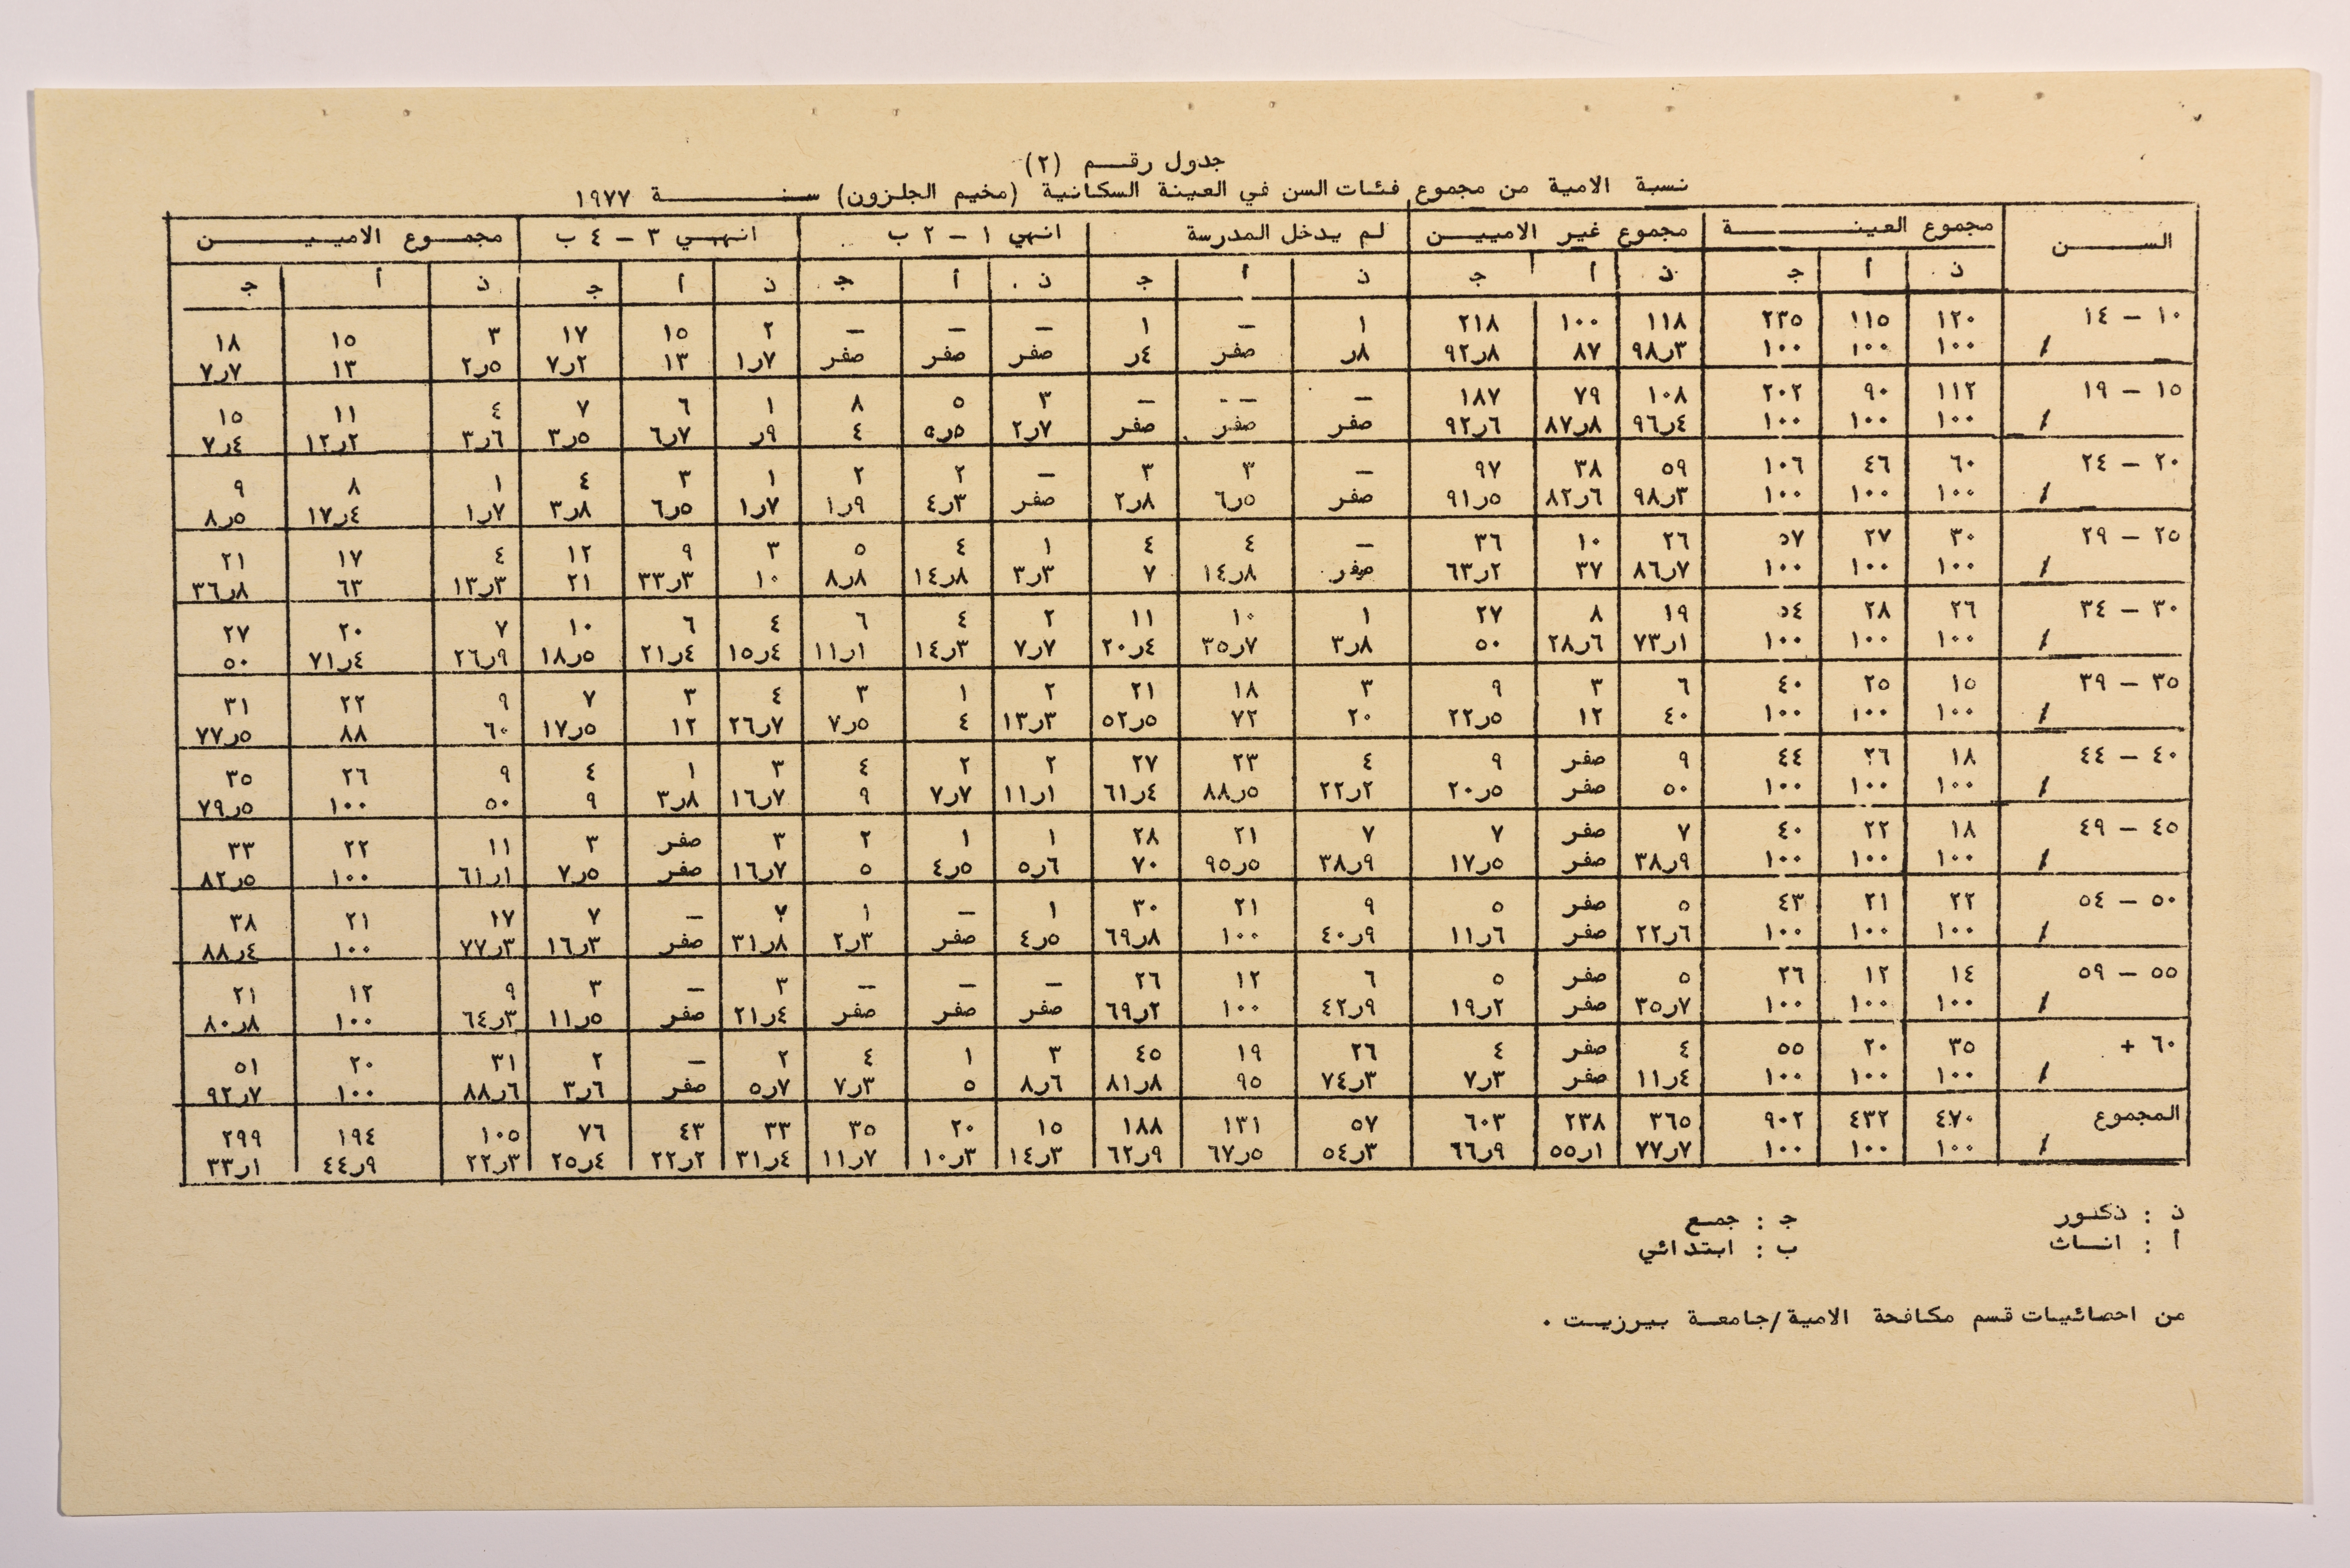 جدول رقم (٢)
نسبة الامية من مجموع فئات السن في العينة السكانية (مخيم الجلزون) سنة ١٩٧٧
السن مجموع العينة مجموع غير الاميين لم يدخل المدرسة انهي ١ – ٢ ب انهي ٣ – ٤ ب مجموع الاميين
ذ أ ج ذ أ ج ذ أ ج ذ أ ج ذ أ ج ذ أ ج
١٠ – ١٤ ١٢٠ ١١٥ ٢٣٥ ١١٨ ١٠٠ ٢١٨ ١ – ١ – – – ٢ ١٥ ١٧ ٣ ١٥ ١٨
٪ ١٠٠ ١٠٠ ١٠٠ ٩٨ر٣ ٨٧ ٩٢ر٨ ر٨ صفر ر٤ صفر صفر صفر ١ر٧ ١٣ ٧ر٢ ٢ر٥ ١٣ ٧ر٧
١٥ – ١٩ ١١٢ ٩٠ ٢٠٢ ١٠٨ ٧٩ ١٨٧ – – – ٣ ٥ ٨ ١ ٦ ٧ ٤ ١١ ١٥
٪ ١٠٠ ١٠٠ ١٠٠ ٩٦ر٤ ٨٧ر٨ ٩٢ر٦ صفر صفر صفر ٢ر٧ ٥ر٥ ٤ ر٩ ٦ر٧ ٣ر٥ ٣ر٦ ١٢ر٢ ٧ر٤
٢٠ – ٢٤ ٦٠ ٤٦ ١٠٦ ٥٩ ٣٨ ٩٧ – ٣ ٣ – ٢ ٢ ١ ٣ ٤ ١ ٨ ٩
٪ ١٠٠ ١٠٠ ١٠٠ ٩٨ر٣ ٨٢ر٦ ٩١ر٥ صفر ٦ر٥ ٢ر٨ صفر ٤ر٣ ١ر٩ ١ر٧ ٦ر٥ ٣ر٨ ١ر٧ ١٧ر٤ ٨ر٥
٢٥ – ٢٩ ٣٠ ٢٧ ٥٧ ٢٦ ١٠ ٣٦ – ٤ ٤ ١ ٤ ٥ ٣ ٩ ١٢ ٤ ١٧ ٢١
٪ ١٠٠ ١٠٠ ١٠٠ ٨٦ر٧ ٣٧ ٦٣ر٢ صفر ١٤ر٨ ٧ ٣ر٣ ١٤ر٨ ٨ر٨ ١٠ ٣٣ر٣ ٢١ ١٣ر٣ ٦٣ ٣٦ر٨
٣٠ – ٣٤ ٢٦ ٢٨ ٥٤ ١٩ ٨ ٢٧ ١ ١٠ ١١ ٢ ٤ ٦ ٤ ٦ ١٠ ٧ ٢٠ ٢٧
٪ ١٠٠ ١٠٠ ١٠٠ ٧٣ر١ ٢٨ر٦ ٥٠ ٣ر٨ ٣٥ر٧ ٢٠ر٤ ٧ر٧ ١٤ر٣ ١١ر١ ١٥ر٤ ٢١ر٤ ١٨ر٥ ٢٦ر٩ ٧١ر٤ ٥٠
٣٥ – ٣٩ ١٥ ٢٥ ٤٠ ٦ ٣ ٩ ٣ ١٨ ٢١ ٢ ١ ٣ ٤ ٣ ٧ ٩ ٢٢ ٣١
٪ ١٠٠ ١٠٠ ١٠٠ ٤٠ ١٢ ٢٢ر٥ ٢٠ ٧٢ ٥٢ر٥ ١٣ر٣ ٤ ٧ر٥ ٢٦ر٧ ١٢ ١٧ر٥ ٦٠ ٨٨ ٧٧ر٥
٤٠ – ٤٤ ١٨ ٢٦ ٤٤ ٩ صفر ٩ ٤ ٢٣ ٢٧ ٢ ٢ ٤ ٣ ١ ٤ ٩ ٢٦ ٣٥
٪ ١٠٠ ١٠٠ ١٠٠ ٥٠ صفر ٢٠ر٥ ٢٢ر٢ ٨٨ر٥ ٦١ر٤ ١١ر١ ٧ر٧ ٩ ١٦ر٧ ٣ر٨ ٩ ٥٠ ١٠٠ ٧٩ر٥
٤٥ – ٤٩ ١٨ ٢٢ ٤٠ ٧ صفر ٧ ٧ ٢١ ٢٨ ١ ١ ٢ ٣ صفر ٣ ١١ ٢٢ ٣٣
٪ ١٠٠ ١٠٠ ١٠٠ ٣٨ر٩ صفر ١٧ر٥ ٣٨ر٩ ٩٥ر٥ ٧٠ ٥ر٦ ٤ر٥ ٥ ١٦ر٧ صفر ٧ر٥ ٦١ر١ ١٠٠ ٨٢ر٥
٥٠ – ٥٤ ٢٢ ٢١ ٤٣ ٥ صفر ٥ ٩ ٢١ ٣٠ ١ – ١ ٧ – ٧ ١٧ ٢١ ٣٨
٪ ١٠٠ ١٠٠ ١٠٠ ٢٢ر٦ صفر ١١ر٦ ٤٠ر٩ ١٠٠ ٦٩ر٨ ٤ر٥ صفر ٢ر٣ ٣١ر٨ صفر ١٦ر٣ ٧٧ر٣ ١٠٠ ٨٨ر٤
٥٥ – ٥٩ ١٤ ١٢ ٢٦ ٥ صفر ٥ ٦ ١٢ ٢٦ – – – ٣ – ٣ ٩ ١٢ ٢١
٪ ١٠٠ ١٠٠ ١٠٠ ٣٥ر٧ صفر ١٩ر٢ ٤٢ر٩ ١٠٠ ٦٩ر٢ صفر صفر صفر ٢١ر٤ صفر ١١ر٥ ٦٤ر٣ ١٠٠ ٨٠ر٨
٦٠ + ٣٥ ٢٠ ٥٥ ٤ صفر ٤ ٢٦ ١٩ ٤٥ ٣ ١ ٤ ٢ – ٢ ٣١ ٢٠ ٥١
٪ ١٠٠ ١٠٠ ١٠٠ ١١ر٤ صفر ٧ر٣ ٧٤ر٣ ٩٥ ٨١ر٨ ٨ر٦ ٥ ٧ر٣ ٥ر٧ صفر ٣ر٦ ٨٨ر٦ ١٠٠ ٩٢ر٧
المجموع ٤٧٠ ٤٣٢ ٩٠٢ ٣٦٥ ٢٣٨ ٦٠٣ ٥٧ ١٣١ ١٨٨ ١٥ ٢٠ ٣٥ ٣٣ ٤٣ ٧٦ ١٠٥ ١٩٤ ٢٩٩
٪ ١٠٠ ١٠٠ ١٠٠ ٧٧ر٧ ٥٥ر١ ٦٦ر٩ ٥٤ر٣ ٦٧ر٥ ٦٢ر٩ ١٤ر٣ ١٠ر٣ ١١ر٧ ٣١ر٤ ٢٢ر٢ ٢٥ر٤ ٢٢ر٣ ٤٤ر٩ ٣٣ر١
ذ : ذكور ج : جمع
أ : اناث ب : ابتدائي
من احصائيات قسم مكافحة الامية/جامعة بيرزيت .